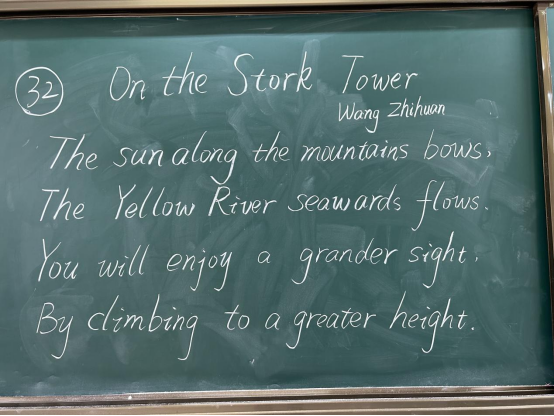 32 On the Stork Tower
Wang Zhihuan
The sun along the mountains bows,
The Yellow River seawards flows.
You will enjoy a grander sight,
By climbing to a greater height.